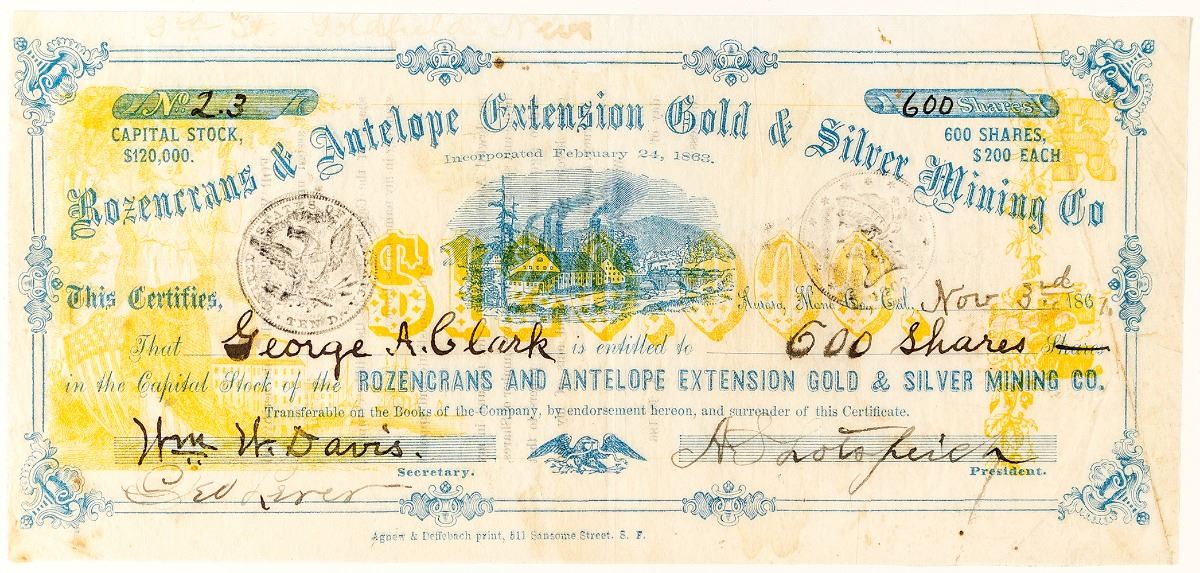 3rd St. Goldfield Nev
No 2.3
600 Shares.
CAPITAL STOCK,
$120,000.
600 SHARES,
$200 EACH
Rozencrans & Antelope Extension Gold & Silver Mining Co
Incorporated February 24, 1863.
STATES OF
TEN D.
This Certifies,
Mono Co., Cal., Nov 3rd 186
That George A. Clark is entitled to 600 Shares Shares
in the Capital Stock of the ROZENCRANS AND ANTELOPE EXTENSION GOLD & SILVER MINING CO.
Transferable on the Books of the Company, by endorsement hereon, and surrender of this Certificate.
Wm W. Davis.
Secretary.
President.
Geo Lerer
Agnew & Deffebach print, 511 Sansome Street, S. F.